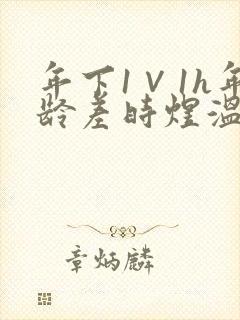 年下1V1h年
龄差时煜温
章炳麟